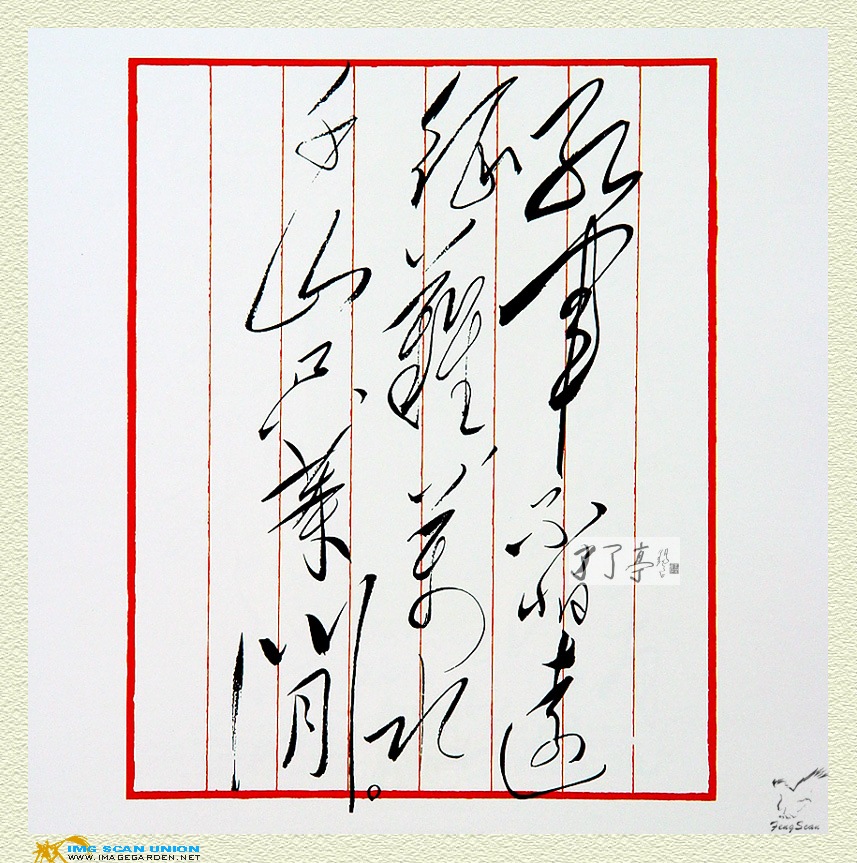 紅軍不怕遠
征難萬水
千山只等閒。
了了亭
FengScan
IMG SCAN UNION
WWW.IMAGEGARDEN.NET